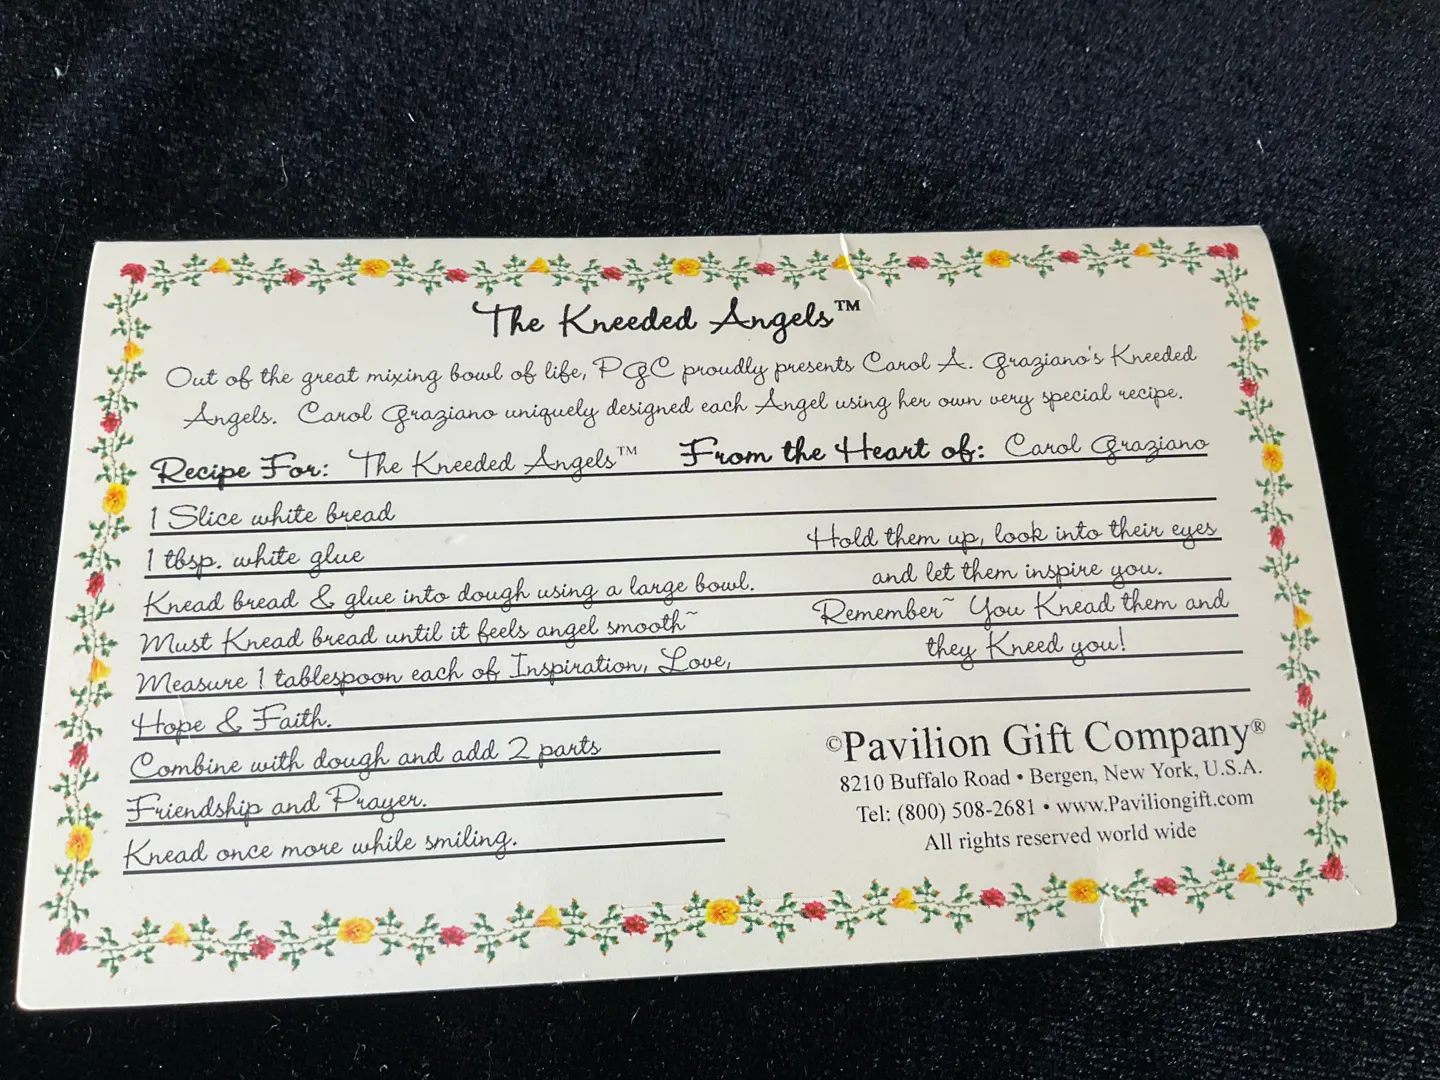 The Kneeded Angels™
Out of the great mixing bowl of life, PGC proudly presents Carol A. Graziano's Kneeded
Angels. Carol Graziano uniquely designed each Angel using her own very special recipe.
Recipe For: The Kneeded Angels™ From the Heart of: Carol Graziano
1 Slice white bread
1 tbsp. white glue
Knead bread & glue into dough using a large bowl.
Must Knead bread until it feels angel smooth~
Measure 1 tablespoon each of Inspiration, Love,
Hope & Faith.
Combine with dough and add 2 parts
Friendship and Prayer.
Knead once more while smiling.
Hold them up, look into their eyes
and let them inspire you.
Remember~ You Knead them and
they Kneed you!
©Pavilion Gift Company®
8210 Buffalo Road • Bergen, New York, U.S.A.
Tel: (800) 508-2681 • www.Paviliongift.com
All rights reserved world wide